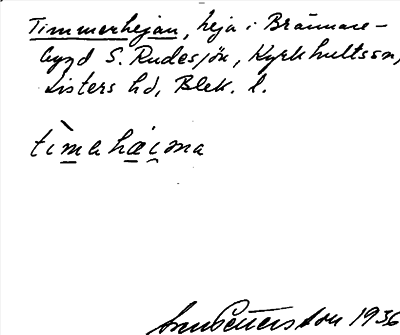 Timmerhejan, heja i Brännare-
bygd S. Rudesjön, Kyrkhultssn,
Listers hd, Blek. l.
tìmahæi̯ma
Petterson 1936